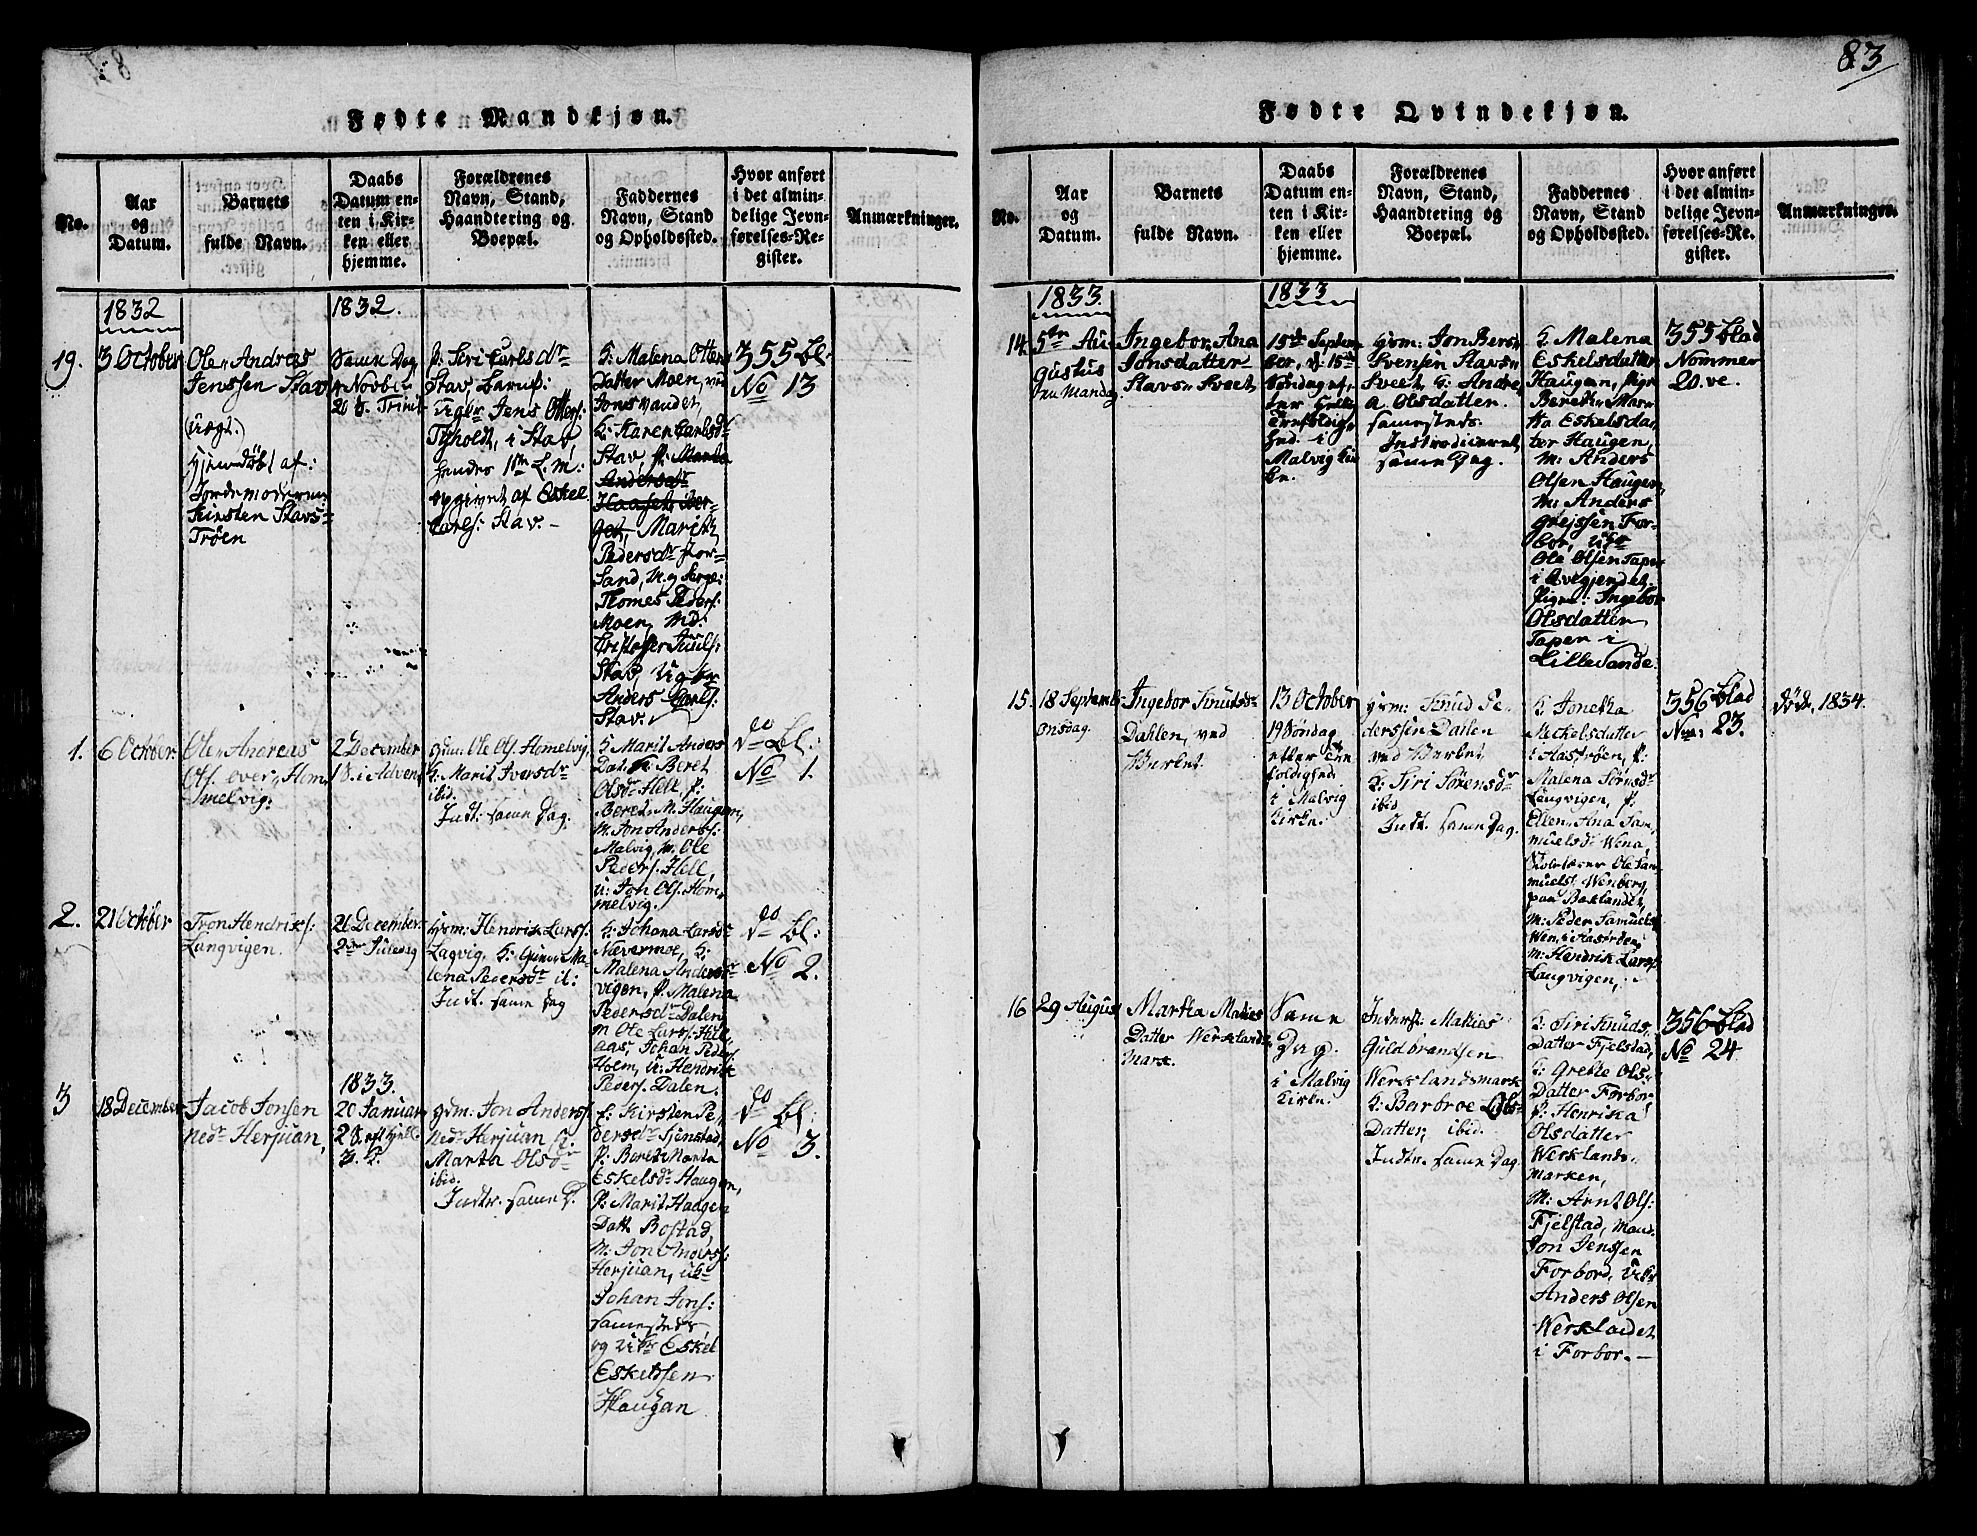 83
Fødte Mandkjøn.
No.
Aar
og
Datum.
Barnets
fulde Navn.
Daabs
Datum en-
ten i Kir-
ken eller
hjemme.
Forældrenes
Navn, Stand,
Haandtering og
Boepæl.
Faddernes
Navn, Stand
og Opholdssted.
Hvor anført
i det almin-
delige Jevn-
førelses-Re-
gister.
Anmærkninger.
1832
19.
3 October
Ole Andreas
Jenssen Stav
(uægt.)
Hjemdøbt af:
Jordemoderen
Kirsten Stavs-
Trøen
1832.
Same Dag
20 S. Trinit
P. Siri Carlsdr
Stav,
Jens Ottersf:
Tyholdt, i Stav
hendes 1ste L. m:
opgivet af Eskel
Carls: Stav. -
K: Malena Otters
Datter Moen, ved
Jonsvandet,
K: Karen Carlsdr
Stav P: Marta
Andersdr
Marith
Pedersdr For-
Sand,
Thomes Peders:
Moen,
Stav, Ugbr
Anders Carls:
Stav.
355 bl:
No 13
1.
6 October.
Ole Andreas
Ols. over Hom
melvig:
2 December
1 S. i Advent
Gum. Ole Ols. Homelvig,
K: Marit Iversdr
ibid.
Indt: same Dag.
K Marit Anders
Dat. K Beret
Olsdr Hell, P:
Beret M. Haugen,
M. Jon Anderss:
Malvig, M. Ole
Peders. Hell,
u: Jon Ols. Hom
melvig.
do bl:
No 1.
2.
21 October
Tron Hendriks:
Langvigen.
26 December
2den Juledag
Gvm: Hendrik Larss.
Lagvig, K: Guner Ma-
lena Pedersdr
Indt. same Dag
K: Johana Larsdr
Nævermoe, K:
Malena Andersdr
vigen, P. Malena
Pedersdr Dalen
M Ole Larss. Hell
aas, Johan Peders.
Holm, u: Hendrik
Peders. Dalen.
do bl:
No 2.
3
18 December
Jacob Jonsen
nedr Herjuan,
1833.
20 Januar
Gvm: Jon Anderss.
nedr Herjuan K.
Marta Olsdr
ibid.
Indtr. same D.
K: Kirsten Pe
dersdr Sjønstad,
P: Beret Marta
Eskelsdr Haugen,
P: Marit Haagen
Datt Bostad,
M: Jon Anderss:
Herjuan, ukr
Johan Jons:
samesteds
og Ukr Eskel
Eskeldsen
Haugan
do bl:
No 3.
Fødte Qvindekjøn.
No.
Aar
og
Datum.
Barnets
fulde Navn.
Daabs
Datum en-
ten i Kir-
ken eller
hjemme.
Forældrenes
Navn, Stand,
Haandtering og
Boepæl.
Faddernes
Navn, Stand
og Opholdssted.
Hvor anført
i det almin-
delige Jevn-
førelses-Re-
gister.
Anmærkninger.
1833.
14.
5te Au-
gustus
Mandag.
Ingebor, Ana
Jonsdatter
Stavs- Sveet,
1833
15de Septem
ber, d: 15de
Søndag ef-
ter Hellig
Trefoldig-
hed. i
Malvig Kir
ke.
Gvm: Jon Bers
Svensen Stavsn
Sveet, K: Andre,
a Olsdatter.
samesteds.
Introduceret,
same Dag.
K. Malena
Eskelsdatter
Haugan, Pige
Bereth, Mar
ta Eskelsdat
ter Haugen,
M: Anders
Olsen Haugen,
M: Anders
Grejssen For-
bor, Ukr
Ole Olsen Taper
Pige: Ingebor
Olsdatter
Taper i
Lillesande.
355 blad
Nommer
20.ve.
15.
18 September
Onsdag.
Ingebor Knudsdr
Dahlen, ved
13 October
19 Søndag
efter Tre
foldighed
i Malvig
Kirke.
Gvm: Knud Pe
derssen Dalen
K: Siri Sørensdr
ibid
Indt. same Dag.
K: Joneta
Meckelsdatter
Hastrøen, P:
Malena Sørnsdr
Langvigen, P:
Ellen Ana Sam
muelsdr Wena,
Skolelærer Ole Sam
muels. Wenberg,
paa Baklandet,
M: Peder Samuels
M: Hendrik Larss.
Langvigen,
356 blad
No: 23.
død, 1834.
16
29 Augus
Marta Matias
Datter Werklands
mark.
Same
Dag.
i Malvig
Kirke.
Inderst: Matias
Guldbrandsen
Werklandsmark
K: Barbroe Ols-
Datter, ibid.
Indtr. same Dag.
K: Siri Knuds.
Datter Fjelstad,
K: Grethe Ols.
Datter Forbor
P: Henrika
Olsdatter
Werklands
marken,
M: Arnt Ols:
Fjelstad, Mand.
Jon Jenssen
Forbord, Ukr
Anders Olsen
Werklandet
i Forbor. -
356 blad
No 24.